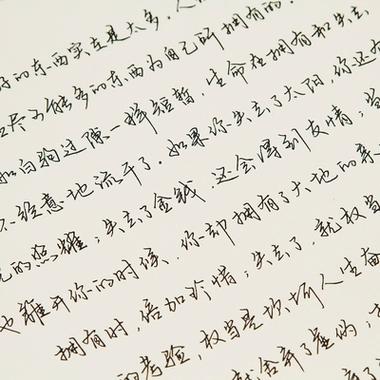 好的东西实在是太多，人
尽可能多的东西为自己所拥有的。
如白驹过隙一样短暂，生命在拥有和失去
不经意地流干了。如果你失去了太阳，你还有
的照耀；失去了金钱，还会得到友情；当
也离开你的时候，你却拥有了大地的亲
拥有时，倍加珍惜；失去了，就权当
的考验，权当是坎坷人生奋
就舍弃了虚伪；